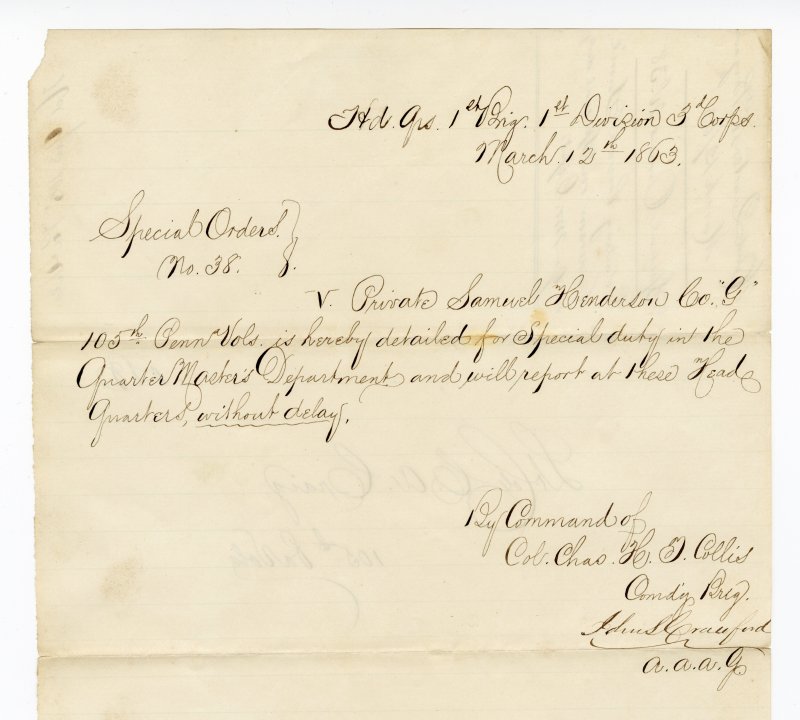 Hd. Qrs. 1st Brig. 1st Division 3d Corps.
March. 12th 1863.
Special Orders.
No. 38.
V. Private Samuel Henderson Co. "G"
105th Penn Vols. is hereby detailed for Special duty in the
Quarter Master's Department and will report at these Head
Quarters, without delay.
By Command of
Col. Chas. H. T. Collis
Comd'g Brig.
Crawford
A. A. A. G.